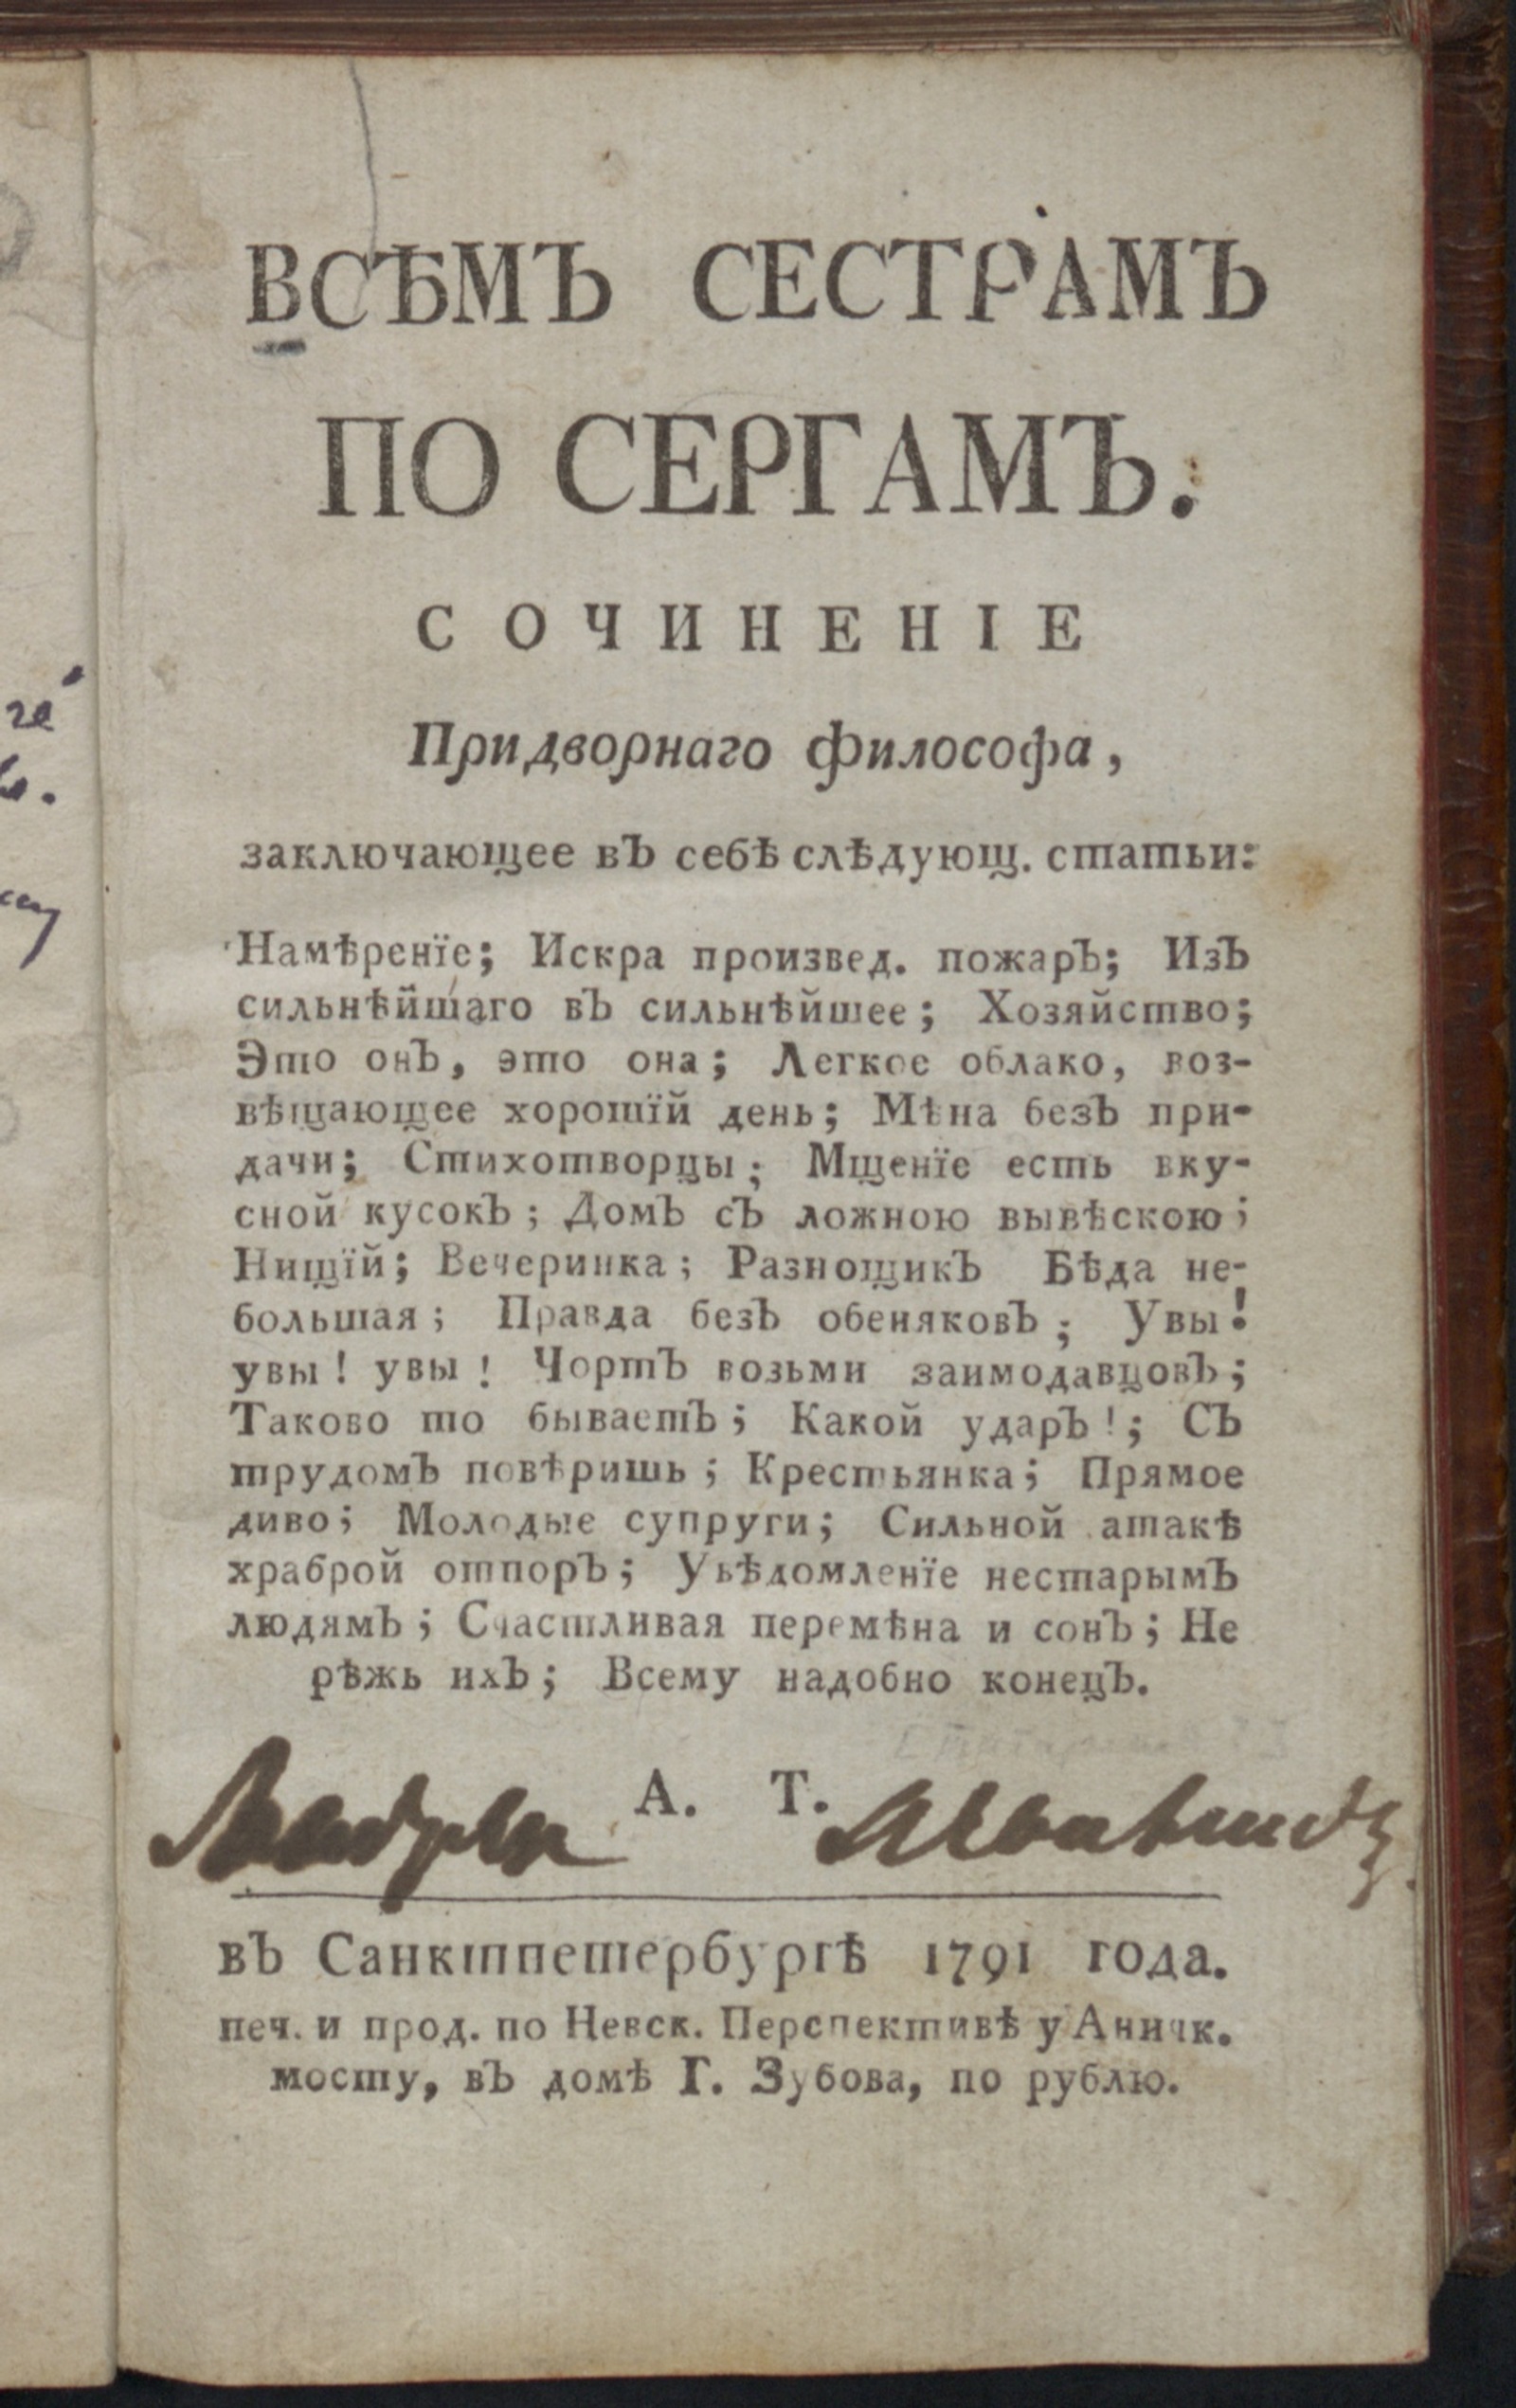 ВСѢМЪ СЕСТРАМЪ
ПО СЕРГАМЪ.
СОЧИНЕНІЕ
Придворнаго философа,
заключающее въ себѣ слѣдующ. статьи:
Намѣренїе; Искра произвед. пожаръ; Изъ
сильнѣйшаго въ сильнѣйшее; Хозяйство;
Это онъ, это она; Легкое облако, воз-
вѣщающее хорошїй день; Мѣна безъ при-
дачи; Стихотворцы; Мщенїе есть вку-
сной кусокъ; Домъ съ ложною вывѣскою;
Нищїй; Вечеринка; Разнощикъ Бѣда не-
большая; Правда безъ обеняковъ; Увы!
увы! увы! Чортъ возьми заимодавцовъ;
Таково то бываетъ; Какой ударъ!; Съ
трудомъ повѣришь; Крестьянка; Прямое
диво; Молодые супруги; Сильной атакѣ
храброй отпоръ; Увѣдомленїе нестарымъ
людямъ; Счастливая перемѣна и сонъ; Не
рѣжь ихъ; Всему надобно конецъ.
А. Т.
въ Санктпетербургѣ 1791 года.
печ. и прод. по Невск. Перспективѣ у Аничк.
мосту, въ домѣ Г. Зубова, по рублю.